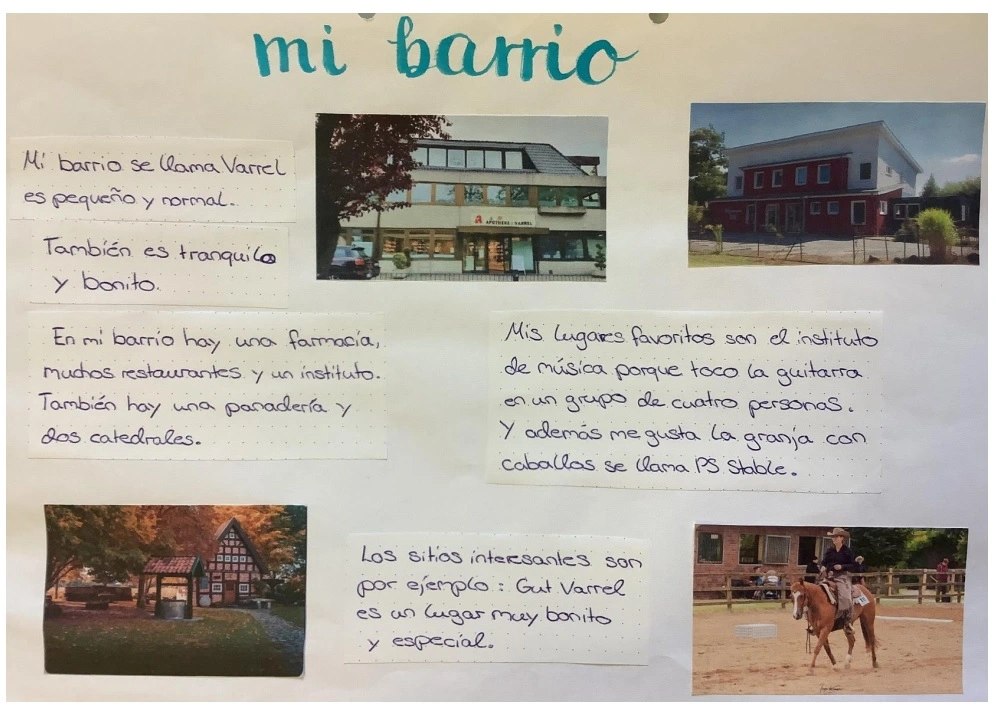 mi barrio
Mi barrio se llama Varrel
es pequeño y normal.
También es tranquilo
y bonito.
APOTHEKE VARREL
En mi barrio hay una farmacía,
muchos restaurantes y un instituto.
También hay una panadería y
dos catedrales.
Mis lugares favoritos son el instituto
de música porque toco la guitarra
en un grupo de cuatro personas.
Y además me gusta la granja con
caballos se llama PS Stable.
Los sitios interesantes son
por ejemplo: Gut Varrel
es un lugar muy bonito
y especial.